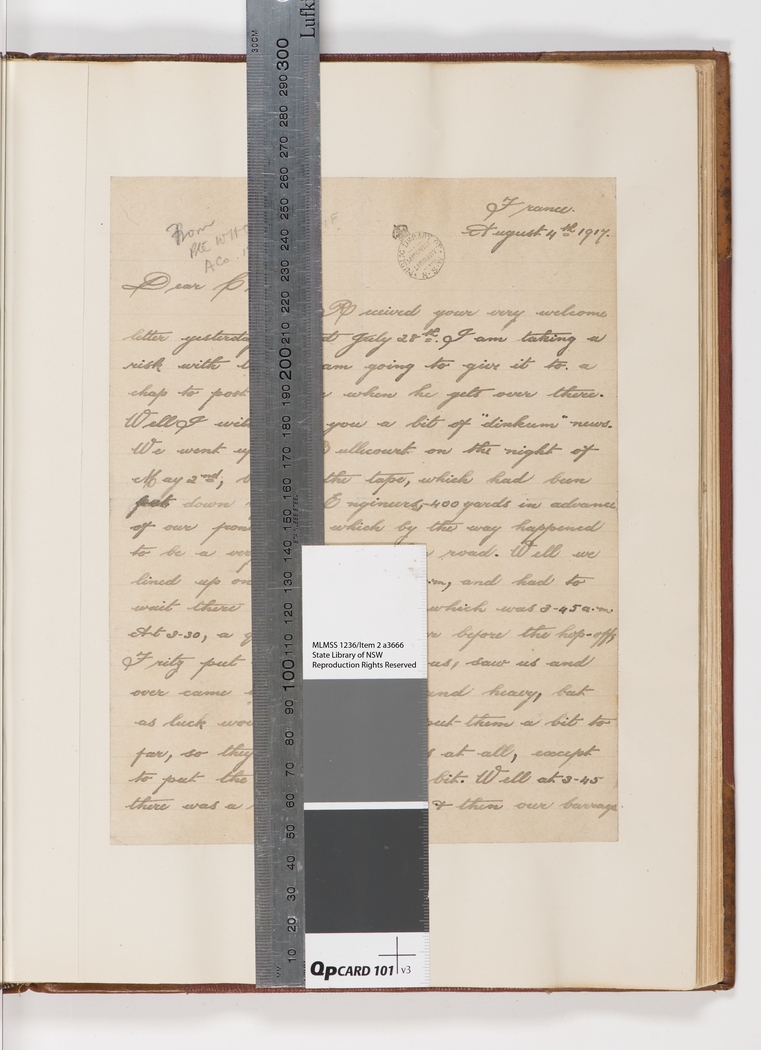 France.
August 4th 1917.
From
Pte
A Co.
Dear
Received your very welcome
letter yesterday July 28th. I am taking a
risk with am going to give it to. a
chap to post when he gets over there.
Well I you a bit of "dinkum" news.
We went on the night of
May 2nd, the tape, which had been
put down Engineers, 400 yards in advance
of our which by the way happened
to be a road. Well we
lined up and had to
wait there which was 3-45 a.m.
At 3-30, a before the hop-off,
Fritz put us, saw us and
over came and heavy, but
as luck put them a bit to
far, so they at all, except
to put the bit. Well at 3-45
there was a & then our barrage
PUBLIC LIBRARY OF N.S.W.
Lufk
30CM
300
290
280
270
260
250
240
230
220
210
200
190
180
170
160
150
140
130
120
110
100
90
80
70
60
50
40
30
20
10
MLMSS 1236/Item 2 a3666
State Library of NSW
Reproduction Rights Reserved
QpCARD 101 v3